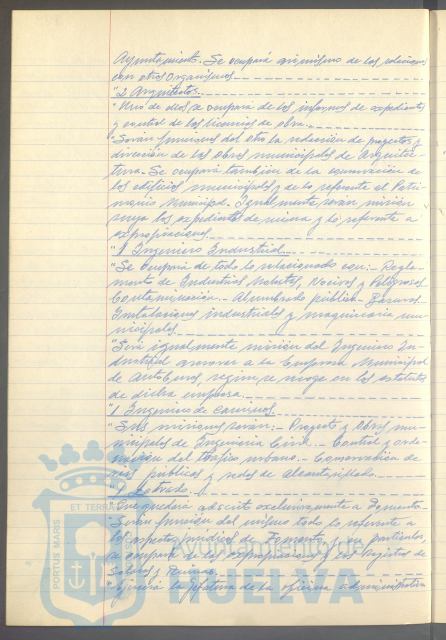 Ayuntamiento. Se ocupará asimismo de las relaciones
con otros Organismos
"2 Arquitectos.
"Uno de ellos se ocupará de los informes de expedientes
y control de las licencias de obra.
"Serán funciones del otro la redacción de proyectos y
dirección de las obras municipales de Arquitec-
tura. Se ocupará también de la conservación de
los edificios municipales y de lo referente al Patri-
monio Municipal. Igualmente serán misión
suya los expedientes de ruina y lo referente a
expropiaciones.
"1 Ingeniero Industrial.
"Se ocupará de todo lo relacionado con:- Regla-
mento de Industrias Molestas, Nocivas y Peligrosas
Contaminación.- Alumbrado público.- Basuras.-
Instalaciones industriales y maquinaria mu-
nicipales.
"Será igualmente misión del Ingeniero In-
dustrial asesorar a la Empresa Municipal
de Autobuses, según se recoge en los estatutos
de dicha empresa.
"1 Ingeniero de caminos.
"Sus misiones serán:- Proyecto y Obras mu-
nicipales de Ingeniería Civil.- Control y orde-
nación del tráfico urbano.- Conservación de
vías públicas y redes de alcantarillado.
" Letrado.
"Que quedará adscrito exclusivamente a Fomento.-
"Serán función del mismo todo lo referente a
los aspectos jurídicos de Fomento, y en particular,
se ocupará de las expropiaciones y del Registro de
Solares y Ruinas.
"Ejercerá la Jefatura de la oficina administrativa
PORTUS MARIS
ET TERRAE
HUELVA